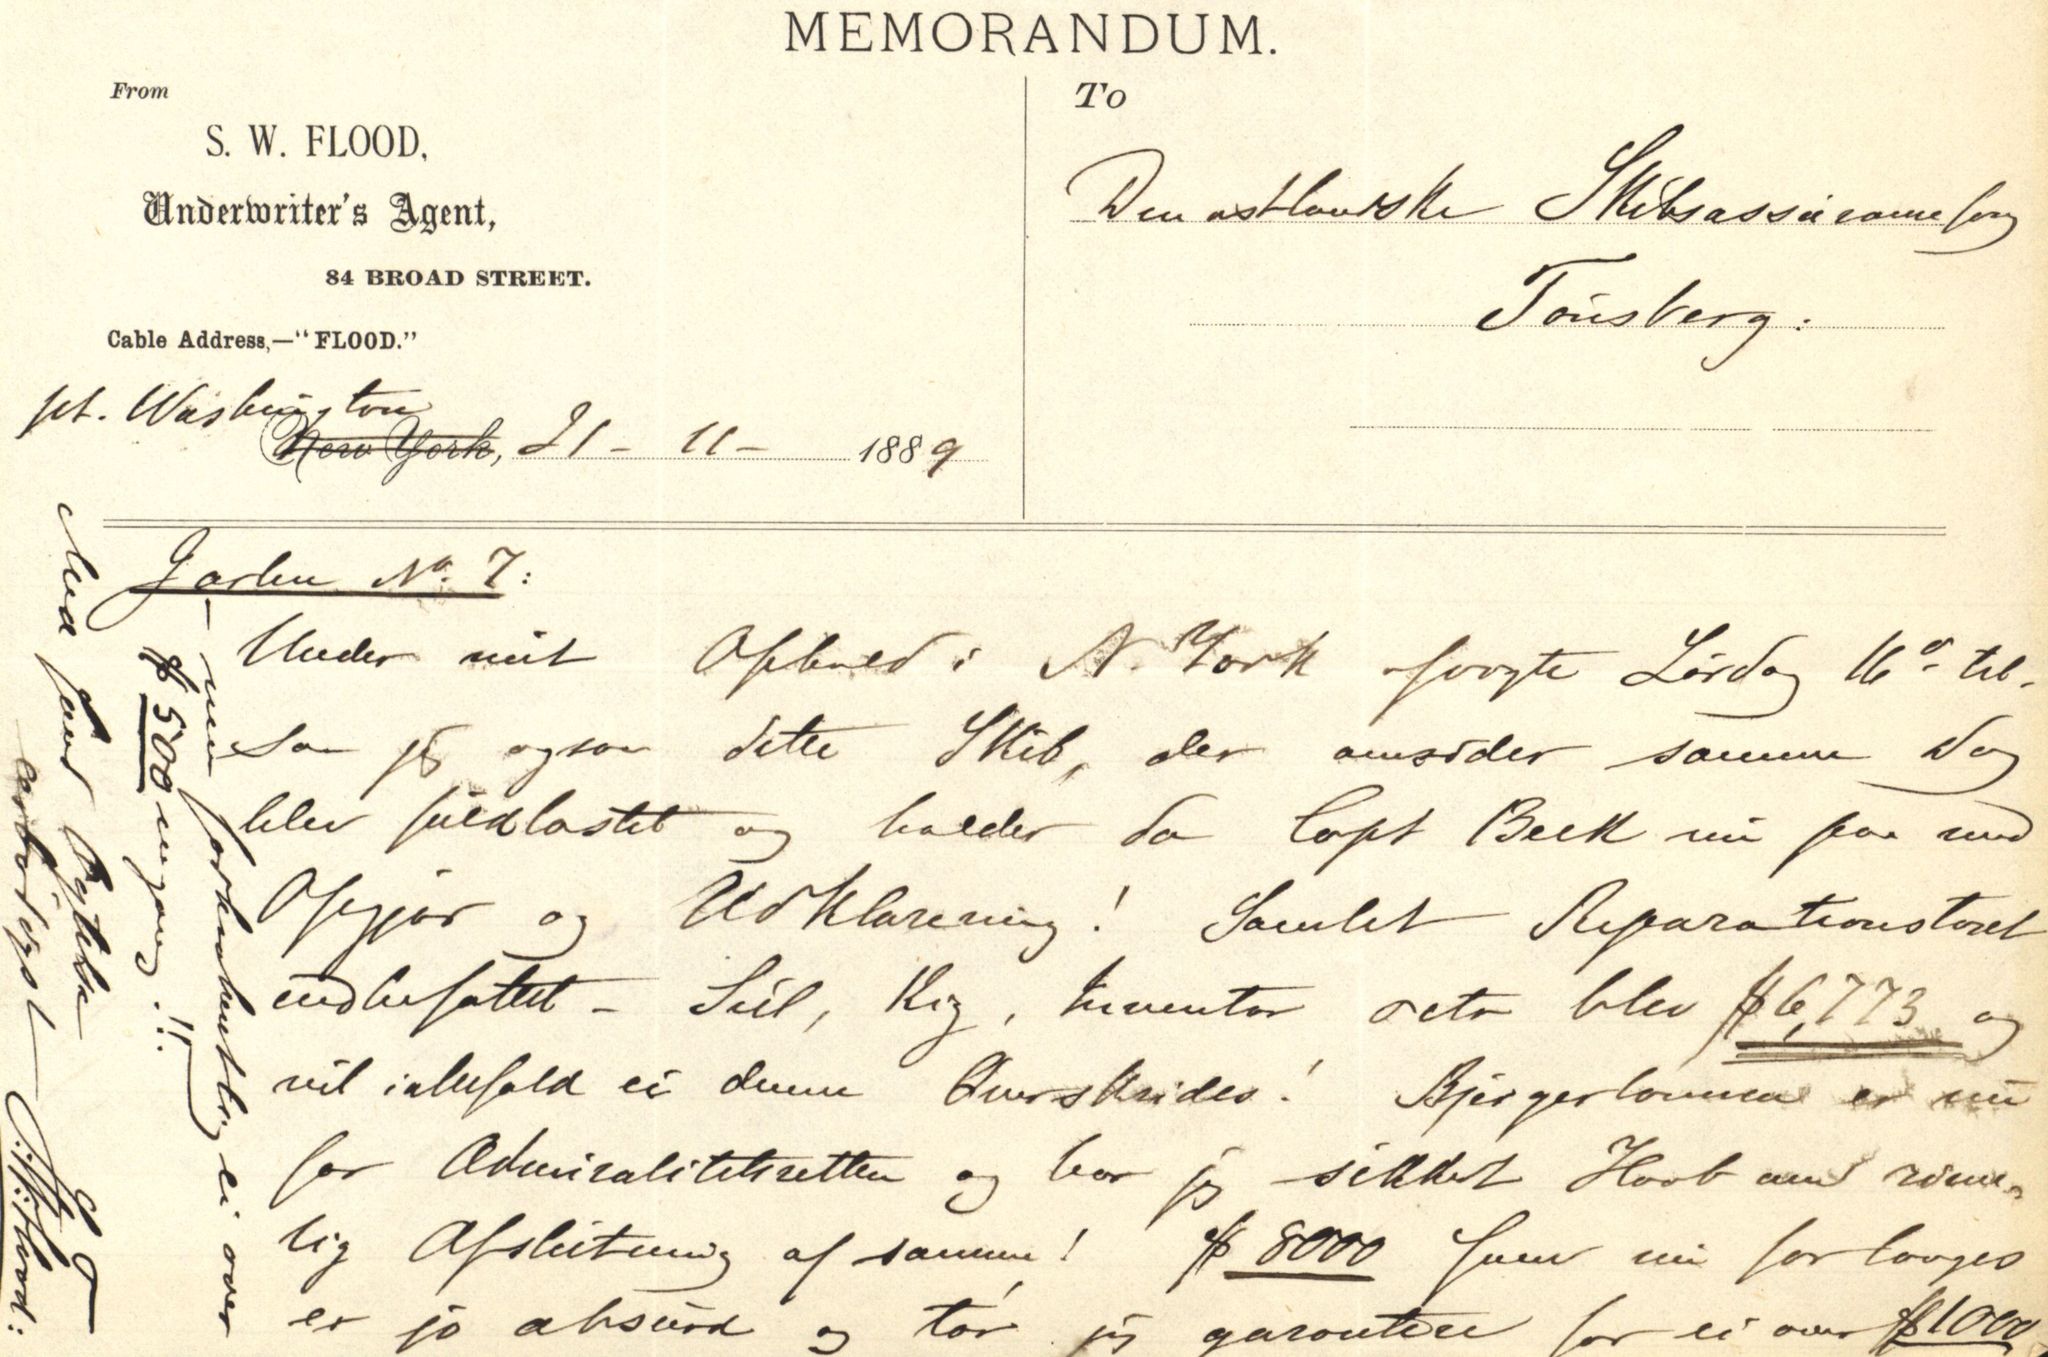 MEMORANDUM.
From
S. W. FLOOD,
Underwriter's Agent,
84 BROAD STREET.
Cable Address,—"FLOOD."
pt. Washington
New York, 21 - 11 - 1889
To
Den østlandske Skibsassuranceforg
Tönsberg.
No. 7:
Under mit Ophold i N. York forrgte Lördag 16d til.
saa jeg ogsaa dette Skib, der omsider samme Dag
blev fuldlastet og holder da Capt Beck nu paa med
Opgjör og Udklarering! Samlet
indbefattet - Seil, Rig, Inventar &ctr blev $6,773 og
vil ialfald ei denne Overskrides! Bjergerlönnen er nu
for Admiralitetsretten og har jeg sikkert Haab om rime-
lig Afslutning af samme! $8000 som nu forlanges
er jo absurd og tör jeg garantere for ei over $1000
- men forhaabentlig ei over
$500 engang.!!
Med fuld Agtelse
ærbödigst
S. W. Flood: